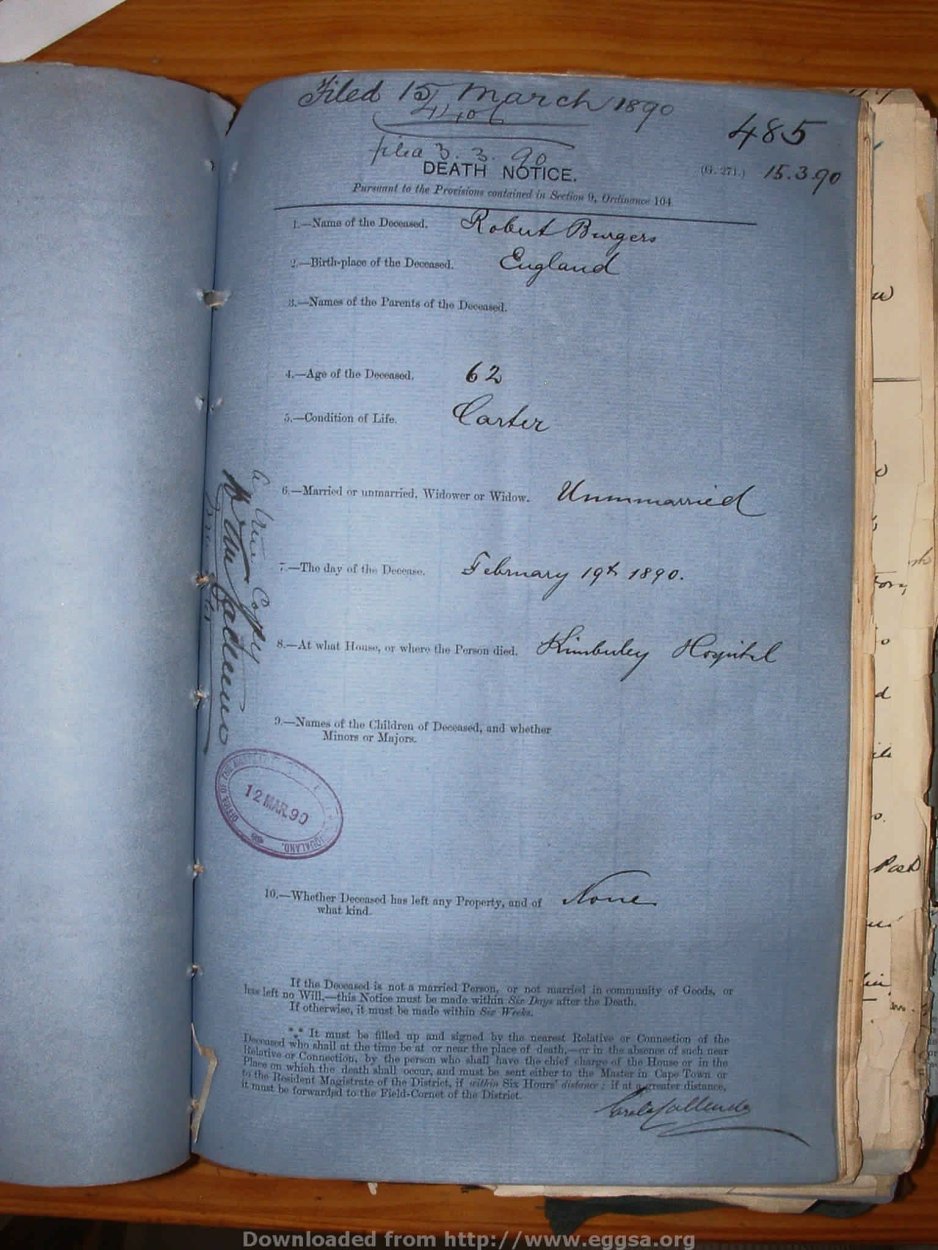 Filed 15 March 1890
4406
485
filed 3. 3. 90
15.3.90
DEATH NOTICE.
(G. 271.)
Pursuant to the Provisions contained in Section 9, Ordinance 104
1.—Name of the Deceased. Robert Burgers
2.—Birth-place of the Deceased. England
3.—Names of the Parents of the Deceased.
4.—Age of the Deceased. 62
5.—Condition of Life. Carter
6.—Married or unmarried, Widower or Widow. Unmmarried
7.—The day of the Decease. February 19th 1890.
8.—At what House, or where the Person died. Kimberley Hospital
9.—Names of the Children of Deceased, and whether
Minors or Majors.
A true Copy
OFFICE OF THE MASTER
12 MAR. 90
10.—Whether Deceased has left any Property, and of None
what kind.
If the Deceased is not a married Person, or not married in community of Goods, or
has left no Will,—this Notice must be made within Six Days after the Death.
If otherwise, it must be made within Six Weeks.
*** It must be filled up and signed by the nearest Relative or Connection of the
Deceased who shall at the time be at or near the place of death,—or in the absence of such near
Relative or Connection, by the person who shall have the chief charge of the House or in the
Place on which the death shall occur, and must be sent either to the Master in Cape Town or
to the Resident Magistrate of the District, if within Six Hours' distance; if at a greater distance,
it must be forwarded to the Field-Cornet of the District.
Downloaded from http://www.eggsa.org